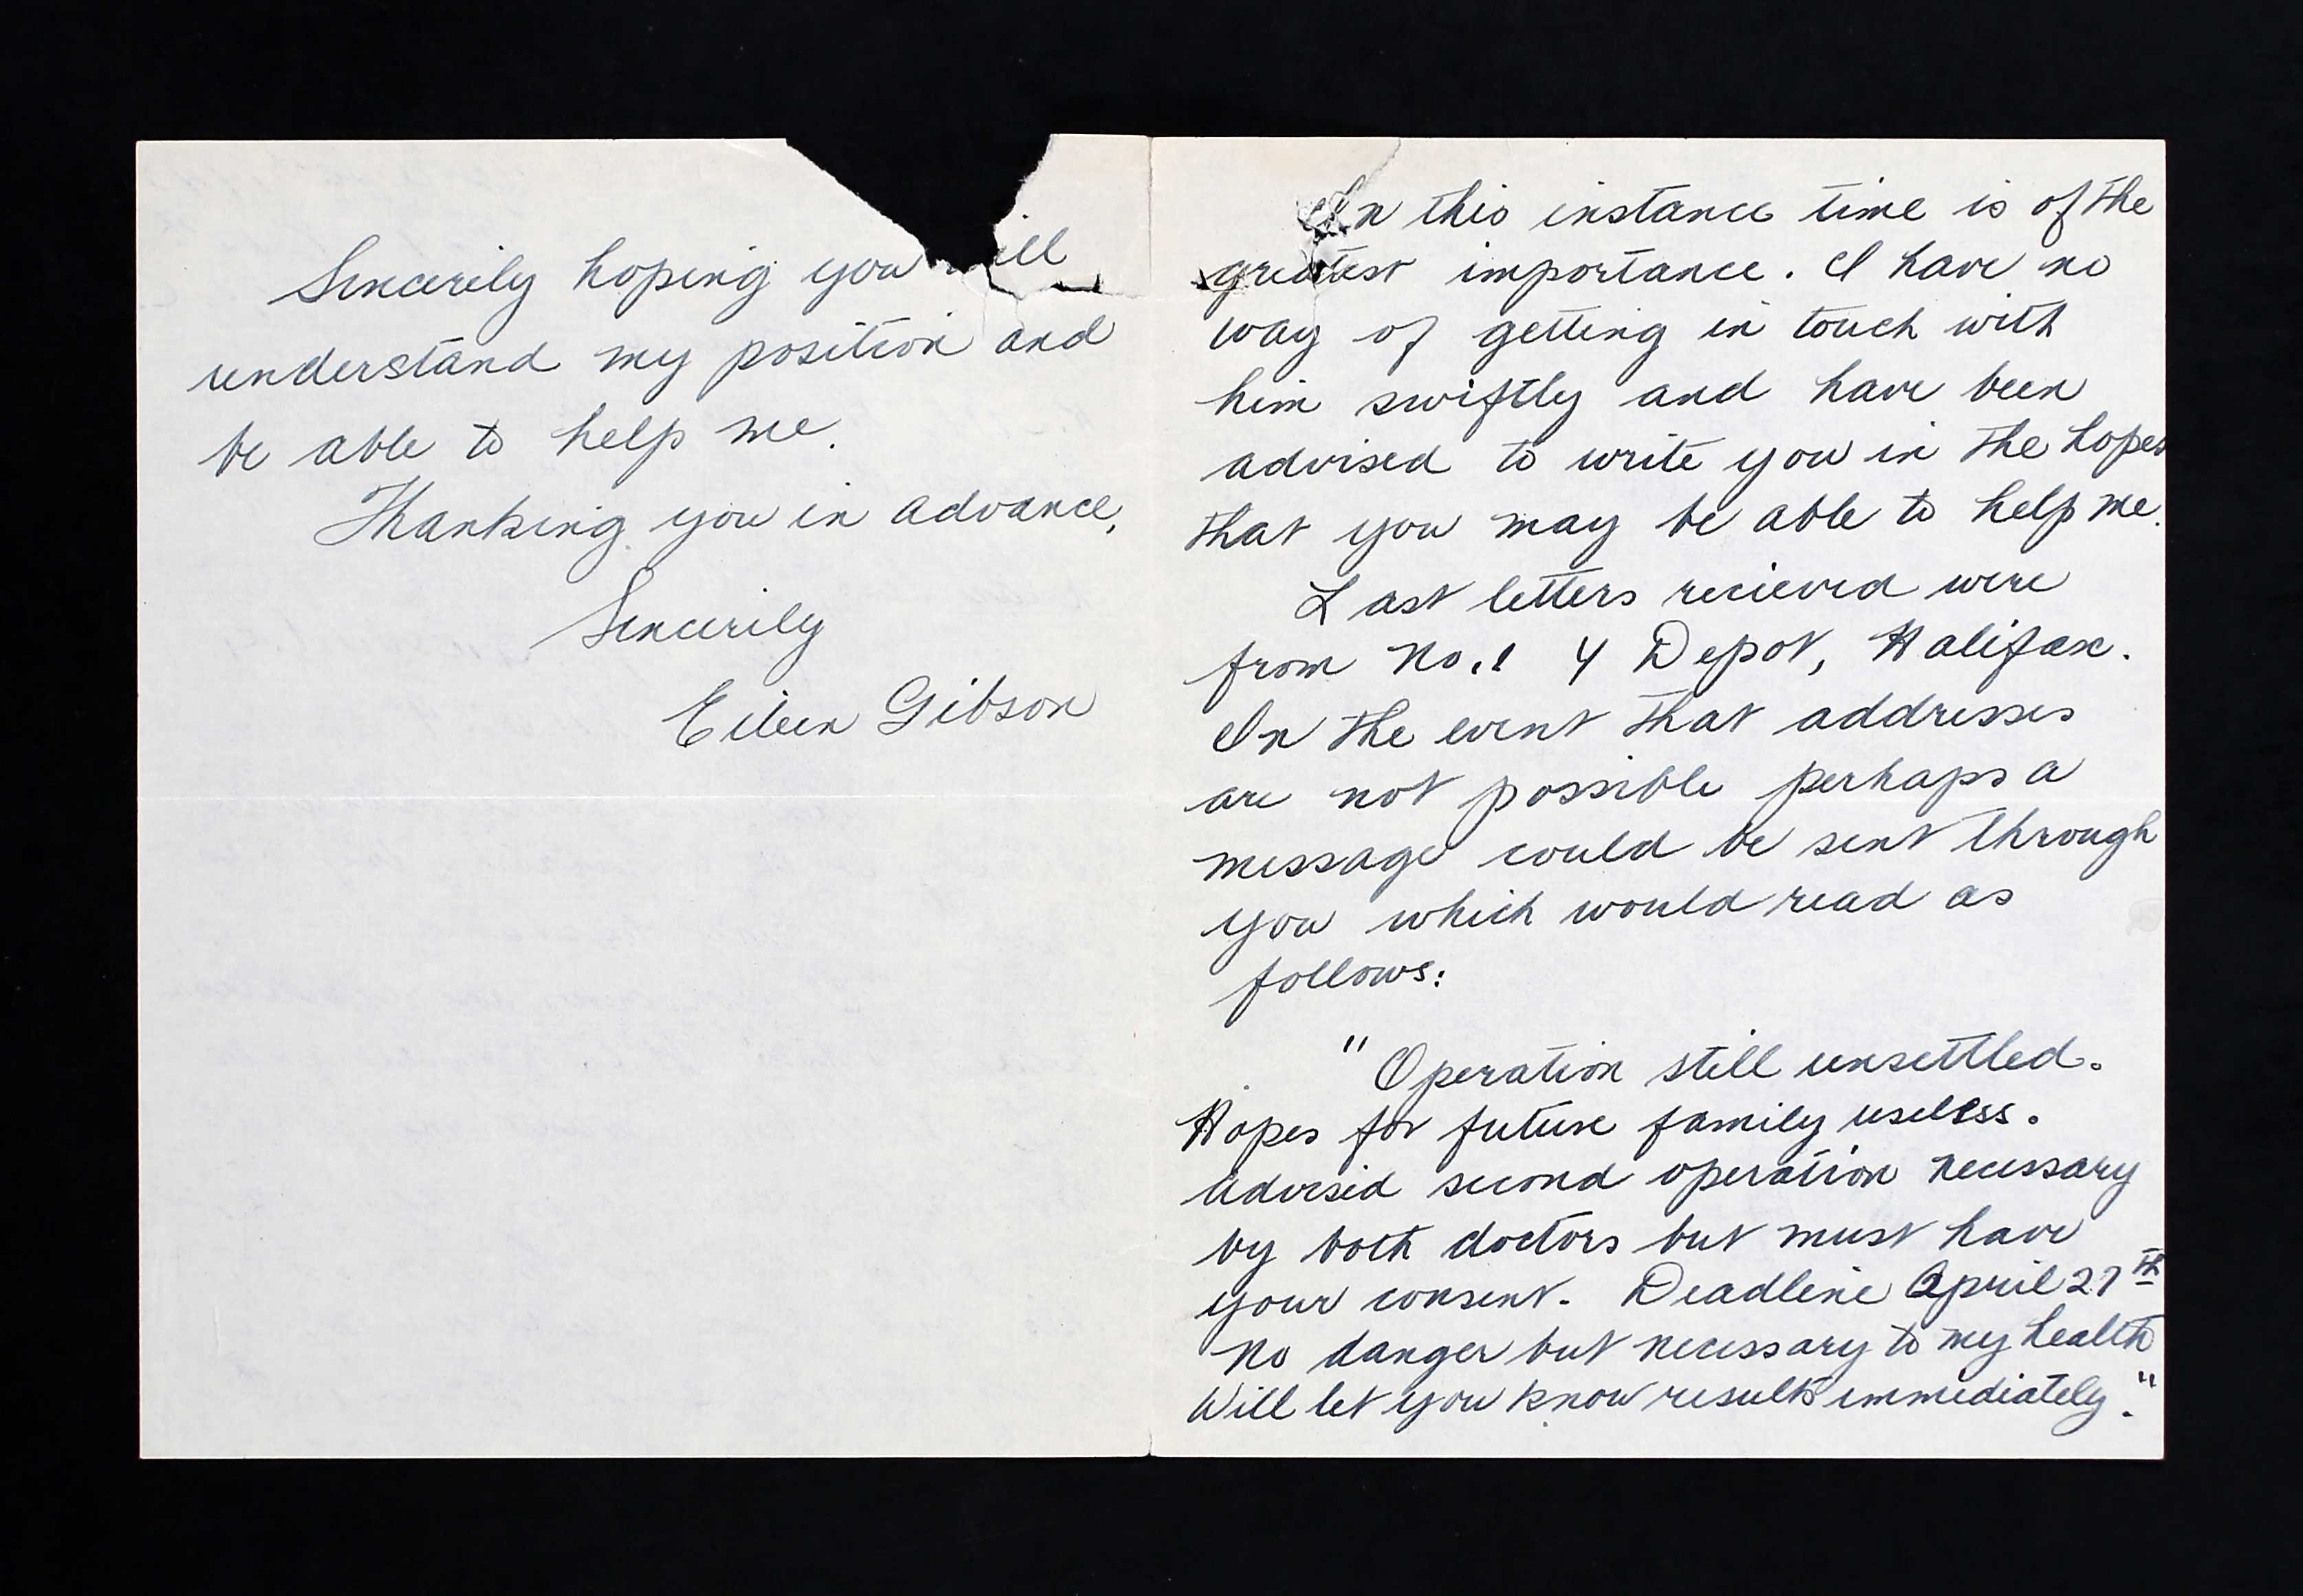 Sincerily hoping you will
understand my position and
be able to help me.
Thanking you in advance,
Sincerily
Eileen Gibson
In this instance time is of the
greatest importance. I have no
way of getting in touch with
him swiftly and have been
advised to write you in the hopes
that you may be able to help me.
Last letters recieved were
from No.1 Y Depot, Halifax.
In the event that addresses
are not possible perhaps a
message could be sent through
you which would read as
follows:
"Operation still unsettled.
Hopes for future family useless.
Advised second operation necessary
by both doctors but must have
your consent. Deadline April 27th
No danger but necessary to my health
Will let you know results immediately."